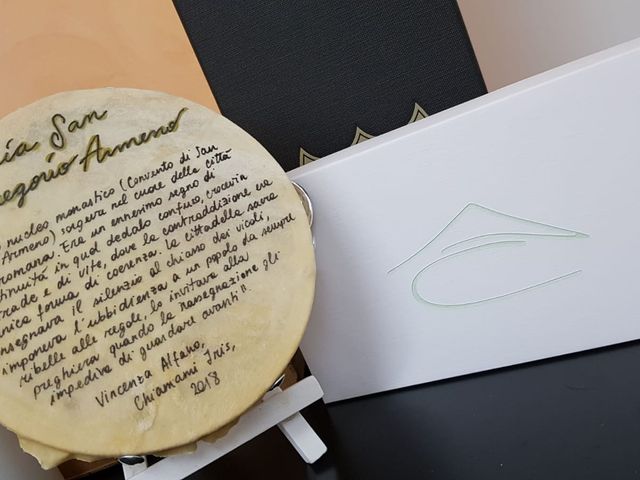 ia San
egorio Armeno
nucleo monastico (Convento di San
Armeno) sorgeva nel cuore della città
romana. Era un ennesimo segno di
tinuità in quel dedalo confuso, crocevia
rade e di vite, dove la contraddizione era
nica forma di coerenza. La cittadella sacra
nsegnava il silenzio al chiasso dei vicoli,
imponeva l'ubbidienza a un popolo da sempre
ribelle alle regole, lo invitava alla
preghiera quando la rassegnazione gli
impediva di guardare avanti".
Vincenza Alfano,
Chiamami Iris,
2018